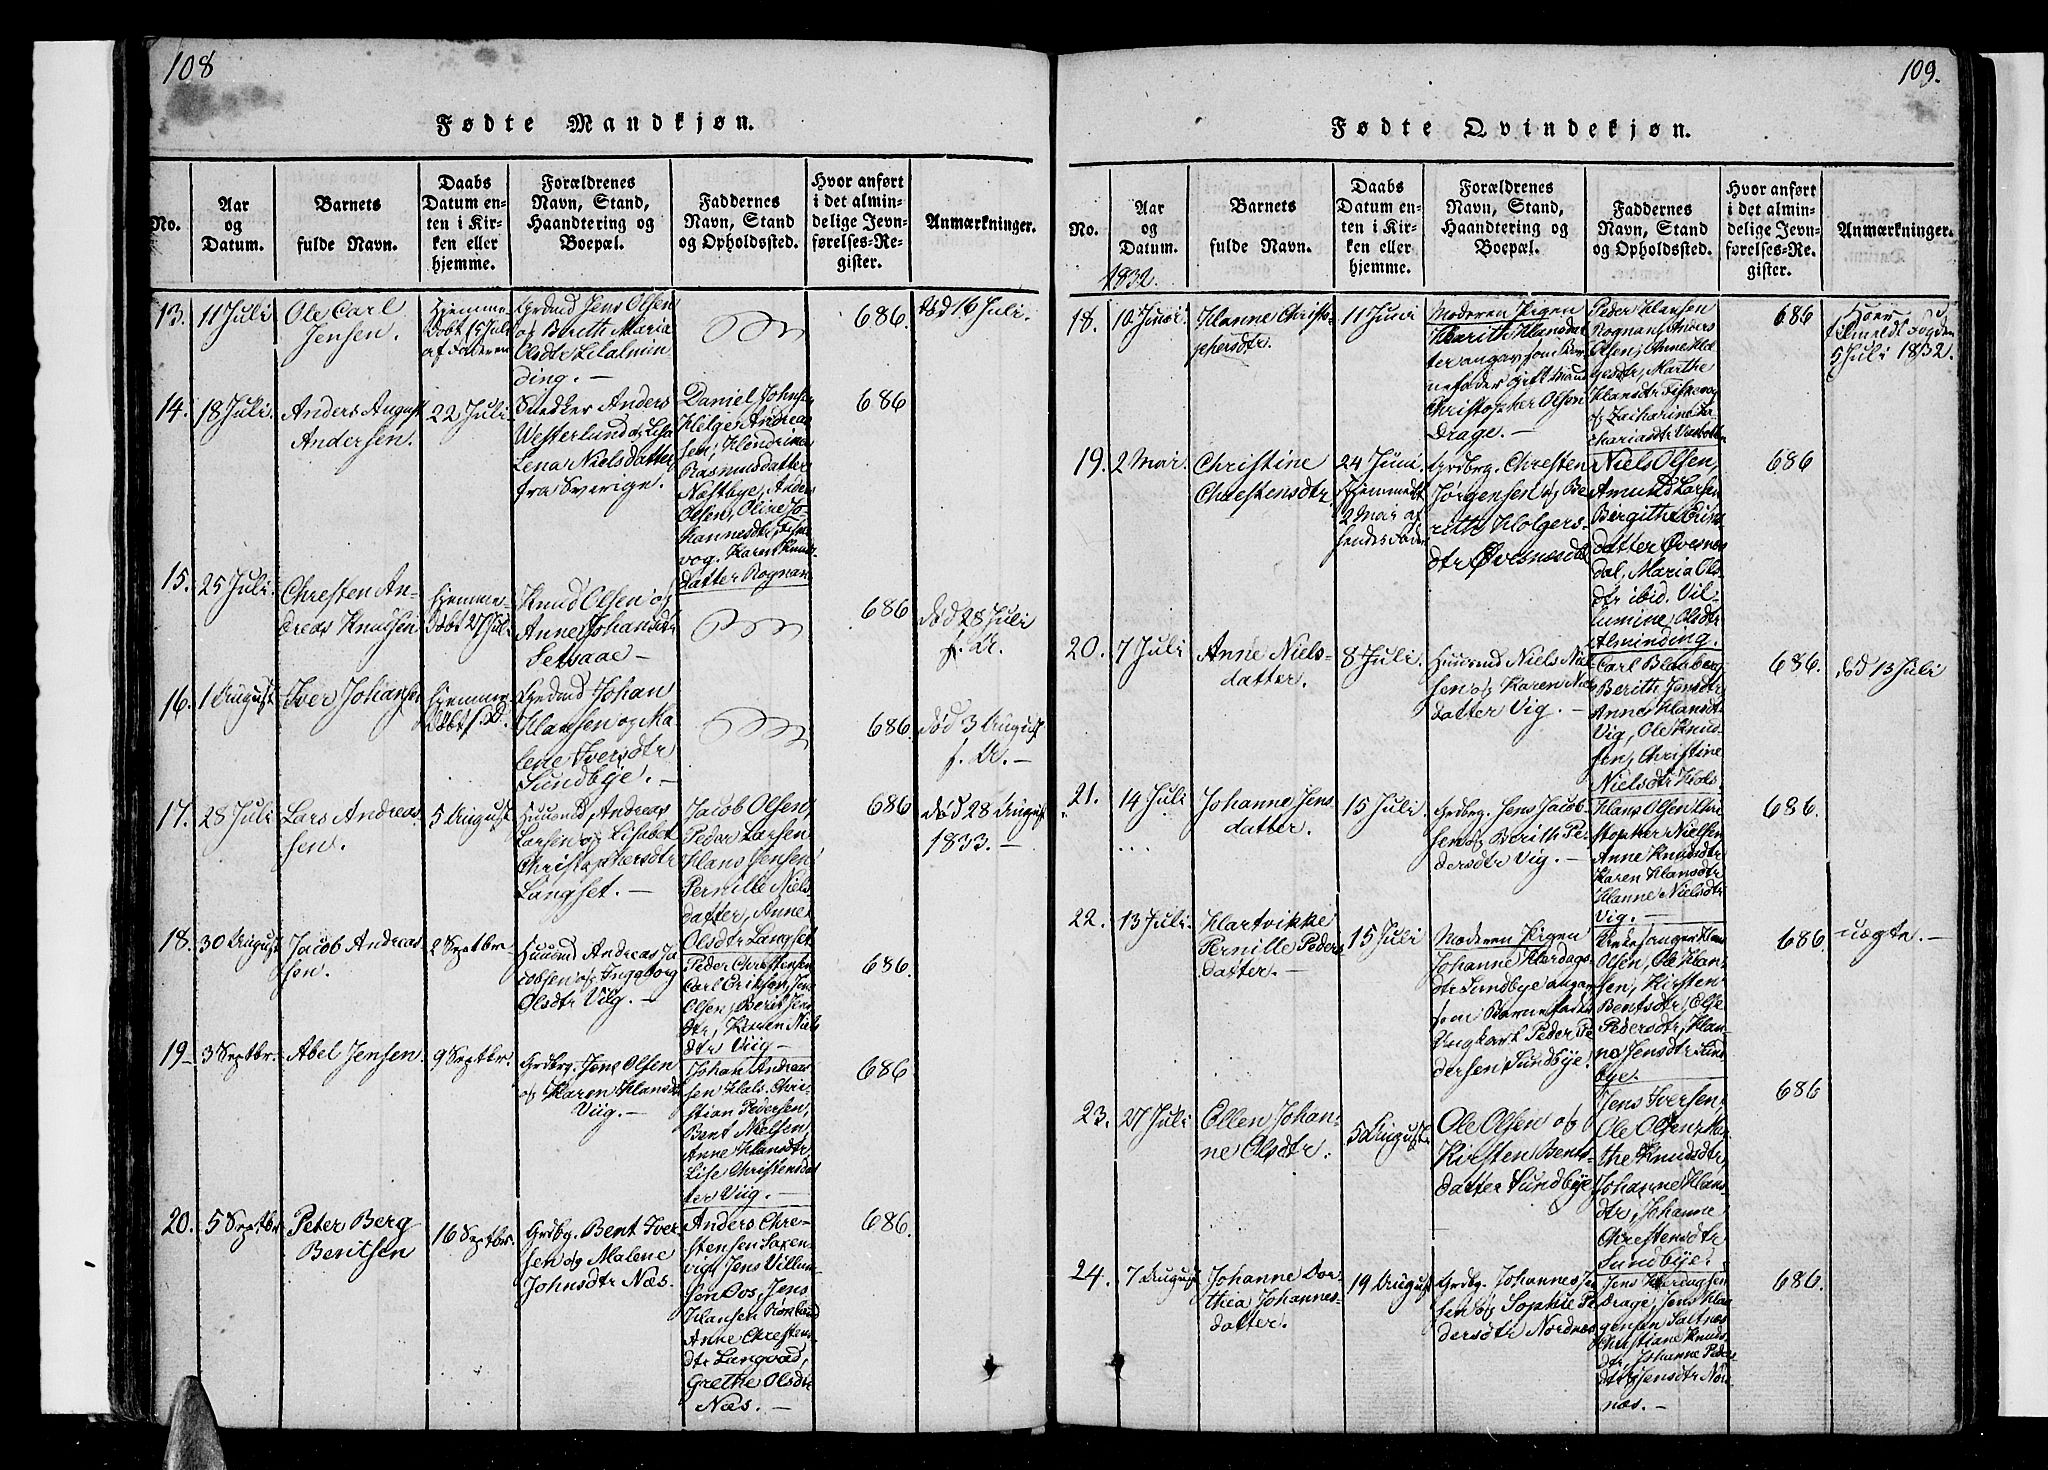 108
Fødte Mandkjøn.
No.
Aar
og
Datum.
Barnets
fulde Navn.
Daabs
Datum en-
ten i Kir-
ken eller
hjemme.
Forældrenes
Navn, Stand,
Haandtering og
Boepæl.
Faddernes
Navn, Stand
og Opholdssted.
Hvor anført
i det almin-
delige Jevn-
førelses-Re-
gister.
Anmærkninger.
13.
11 Juli
Ole Carl
Jensen.
Hjemme
døbt 15 Juli
af Faderen
Grdmd Jens Olsen
og Berith Maria
Olsdtr Lilalmin
ding. —
686.
død 16 Juli.
14.
18 Juli.
Anders August
Andersen.
22 Juli.
Snedker Anders
Westerlund og Lisa
Lena Nielsdatter
fra Sverige.
Daniel Johnsen
Helge Andrea-
sen, Hendrina
Rasmusdatter
Næstbye, Anders
Olsen, Oline Jo-
hannesdtr Fiske-
vog. Karen Knuds-
datter Rognan
686
15.
25 Juli.
Chresten An-
dreas Knudsen
hjemme-
døbt 27 Juli
Knud Olsen og
Anne Johansdtr
Setsaae —
686
død 28 Juli
f. A.
16.
1 August
Iver Johansen
hjemme
døbt f. D.
Grdmd Johan
Hansen og Ma-
lene Iversdtr
Sundbye. —
686.
død 3 August
f. A. —
17.
28 Juli
Lars Andreas
sen.
5 August
Huusmd, Andreas
Larsen og Lisabet
Christophersdtr
Langset. —
Jacob Olsen,
Peder Larsen
Hans Jensen
Pernille Niels
datter, Anne
Olsdtr Langset
686
død 28 August
1833. —
18.
30 August
Jacob Andreas
sen.
2 Septbr
Huusmd Andreas Ja
cobsen og Ingeborg
Olsdtr Viig. —
Peder Christensen
Carl Eriksen, Jens
Olsen, Berit Jens
dtr, Karen Niels
dtr Viig —
686.
19—
3 Septbr.
Abel Jensen.
9 Septbr.
Grdbrg. Jens Olsen
og Karen Hansdtr
Viig. —
Johan Andreas
sen Hals. Chri-
stian Pedersen,
Bent Nielsen
Anne Hansdtr
Lise Christensdat
ter Viig. —
686
20.
5 Septbr
Peter Berg
Bentsen
16 Septbr.
Grdbg. Bent Iver
sen og Malene
Johnsdtr Næs.
Anders Chre-
stensen Saxen-
vig, Jens Villum
sen Oos, Jens
Hansen
Anne Chrestens-
dtr Langvad,
Grethe Olsdtr
Næs. —
686.
109.
Fødte Qvindekjøn.
No.
Aar
og
Datum.
1832.
Barnets
fulde Navn.
Daabs
Datum en-
ten i Kir-
ken eller
hjemme.
Forældrenes
Navn, Stand,
Haandtering og
Boepæl.
Faddernes
Navn, Stand
og Opholdssted.
Hvor anført
i det almin-
delige Jevn-
førelses-Re-
gister.
Anmærkninger.
18.
10 Juni.
Hanne Christo-
phersdtr.
11 Juni
Moderen Pigen
Marith Hansdat
ter angav som Bar
nefader gift Mand
Christopher Olsen
Drage. —
Peder Hansen
Rognan, Anders
Olsen, Anne Hel
gesdtr, Marthe
Hansdtr Fiskevog
og Zacharine Za
chariasdtr
686
Hoer
anmeldt Fogden
5 Juli 1832.
19.
2 Mai.
Christine
Chrestensdtr.
24 Juni.
Hjemmedt
2 Mai af
hendes Fader
Grdbrg. Chresten
Jørgensen og Be-
rith Holgers-
dtr Øvesnesdal
Niels Olsen,
Amund Larsen
Birgithe
datter Øvesnes
dal, Maria Ols
dtr ibid. Vil
lumine Olsdtr
Alminding.
686
20.
7 Juli
Anne Niels-
datter.
8 Juli.
Huusmd Niels Niel
sen og Karen Niels
datter Vig. —
Carl Blaaberg
Berith Jensdtr
Anne Hansdtr
Vig, Ole Knud-
sen, Christine
Nielsdtr Hals.
686.
død 13 Juli
21.
14 Juli
Johanne Jens
datter.
15 Juli
Grdbrg. Jens Jacob
sen og Berith Pe-
dersdtr Vig. —
Hans Olsen Chri
stopher Nielsen
Anne Knudsdtr
Karen Hansdtr
Hanne Nielsdtr
Vig. —
686.
22.
13 Juli.
Hartvikke
Pernille Peders
datter. —
15 Juli
Moderen Pigen
Johanne Hardags-
dtr Sundbye angav
som Barnefader
Ungkarl Peder Pe
dersen Sundbye.
Kirkesanger Hans
Olsen, Ole Han-
sen, Kirsten
Bentsdtr, Else
Pedersdtr, Han-
na Jensdtr Sund
bye.
686.
uægte. —
23.
27 Juli
Ellen Johan-
ne Olsdtr.
5 August.
Ole Olsen og
Kirsten Bents-
datter Sundbye
Jens Iversen,
Ole Olsen, Mar
the Knudsdtr,
Johanne Hans
dtr, Johanne
Chrestensdtr
Sundbye.
686
24.
7 August
Johanne Dor-
thea Johannes-
datter.
19 August
Grdbg. Johannes Jen
sen og Sophie Pe
dersdtr Nordnes
Jens Hervigsen
Drage, Jens Haa
gensen Saltnes
Christiane Knuds
dtr, Johanne Peders
dtr, Jensdtr Nord
nes. —
686.